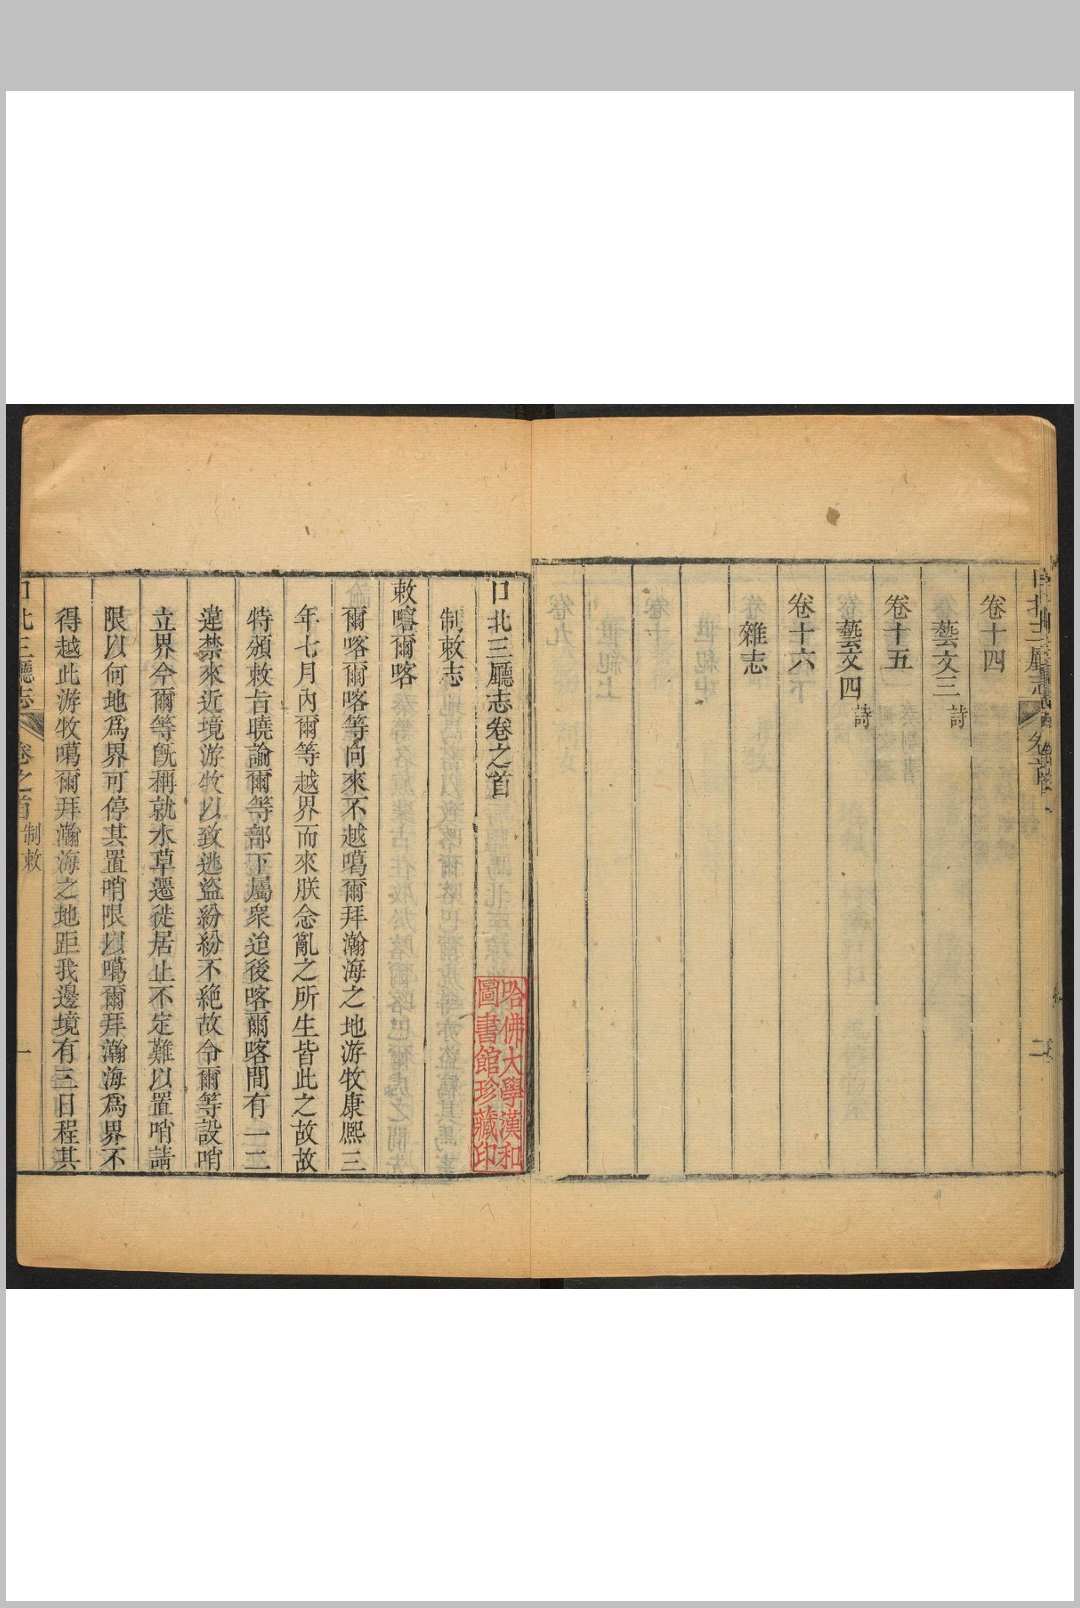 卷十四
藝文三 詩
卷十五
藝文四 詩
卷十六
雜志
二
口北三廳志卷之首
制敕志
敕喀爾喀
爾喀爾喀等向來不越噶爾拜瀚海之地游牧康熙三
年七月內爾等越界而來朕念亂之所生皆此之故故
特頒敕旨曉諭爾等部下屬衆迨後喀爾喀間有一二
違禁來近境游牧以致逃盜紛紛不絶故令爾等設哨
立界今爾等旣稱就水草遷徙居止不定難以置哨請
限以何地爲界可停其置哨限以噶爾拜瀚海爲界不
得越此游牧噶爾拜瀚海之地距我邊境有三日程其
口北三廳志 卷之首 制敕 一
哈佛大學漢和
圖書館珍藏印